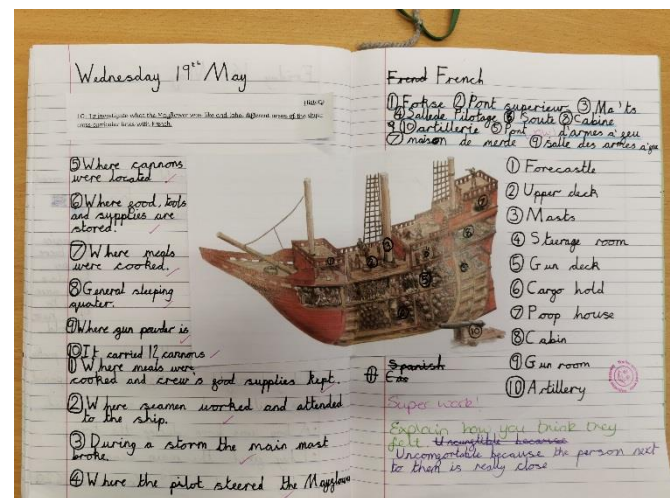 Wednesday 19th May
LO: To investigate what the Mayflower was like and label different areas of the ship
cross-curricular links with French.
⑤ Where cannons
were located
⑥ Where good, tools
and supplies are
stored.
⑦ Where meals
were cooked.
⑧ General sleeping
quater.
⑨ Where gun powder is
⑩ It carried 12 cannons
① Where meals were
cooked and crew's good supplies kept.
② Where seamen worked and attended
to the ship.
③ During a storm the main mast
broke.
④ Where the pilot steered the Mayflower
Frend French
① Fokise ② Pont superieur ③ Ma'ts
④ Sallede Pilotage ⑥ Soute ⑧ Cabine
⑩ artillerie ⑤ Pont d'armes a feu
⑦ maison de merde ⑨ Salle des armes
① Forecastle
② Upper deck
③ Masts
④ Steerage room
⑤ Gun deck
⑥ Cargo hold
⑦ Poop house
⑧ Cabin
⑨ Gun room
⑩ Artillery
Spanish
Super work!
Explain how you think they
felt.
Uncomfortable because the person next
to them is really close